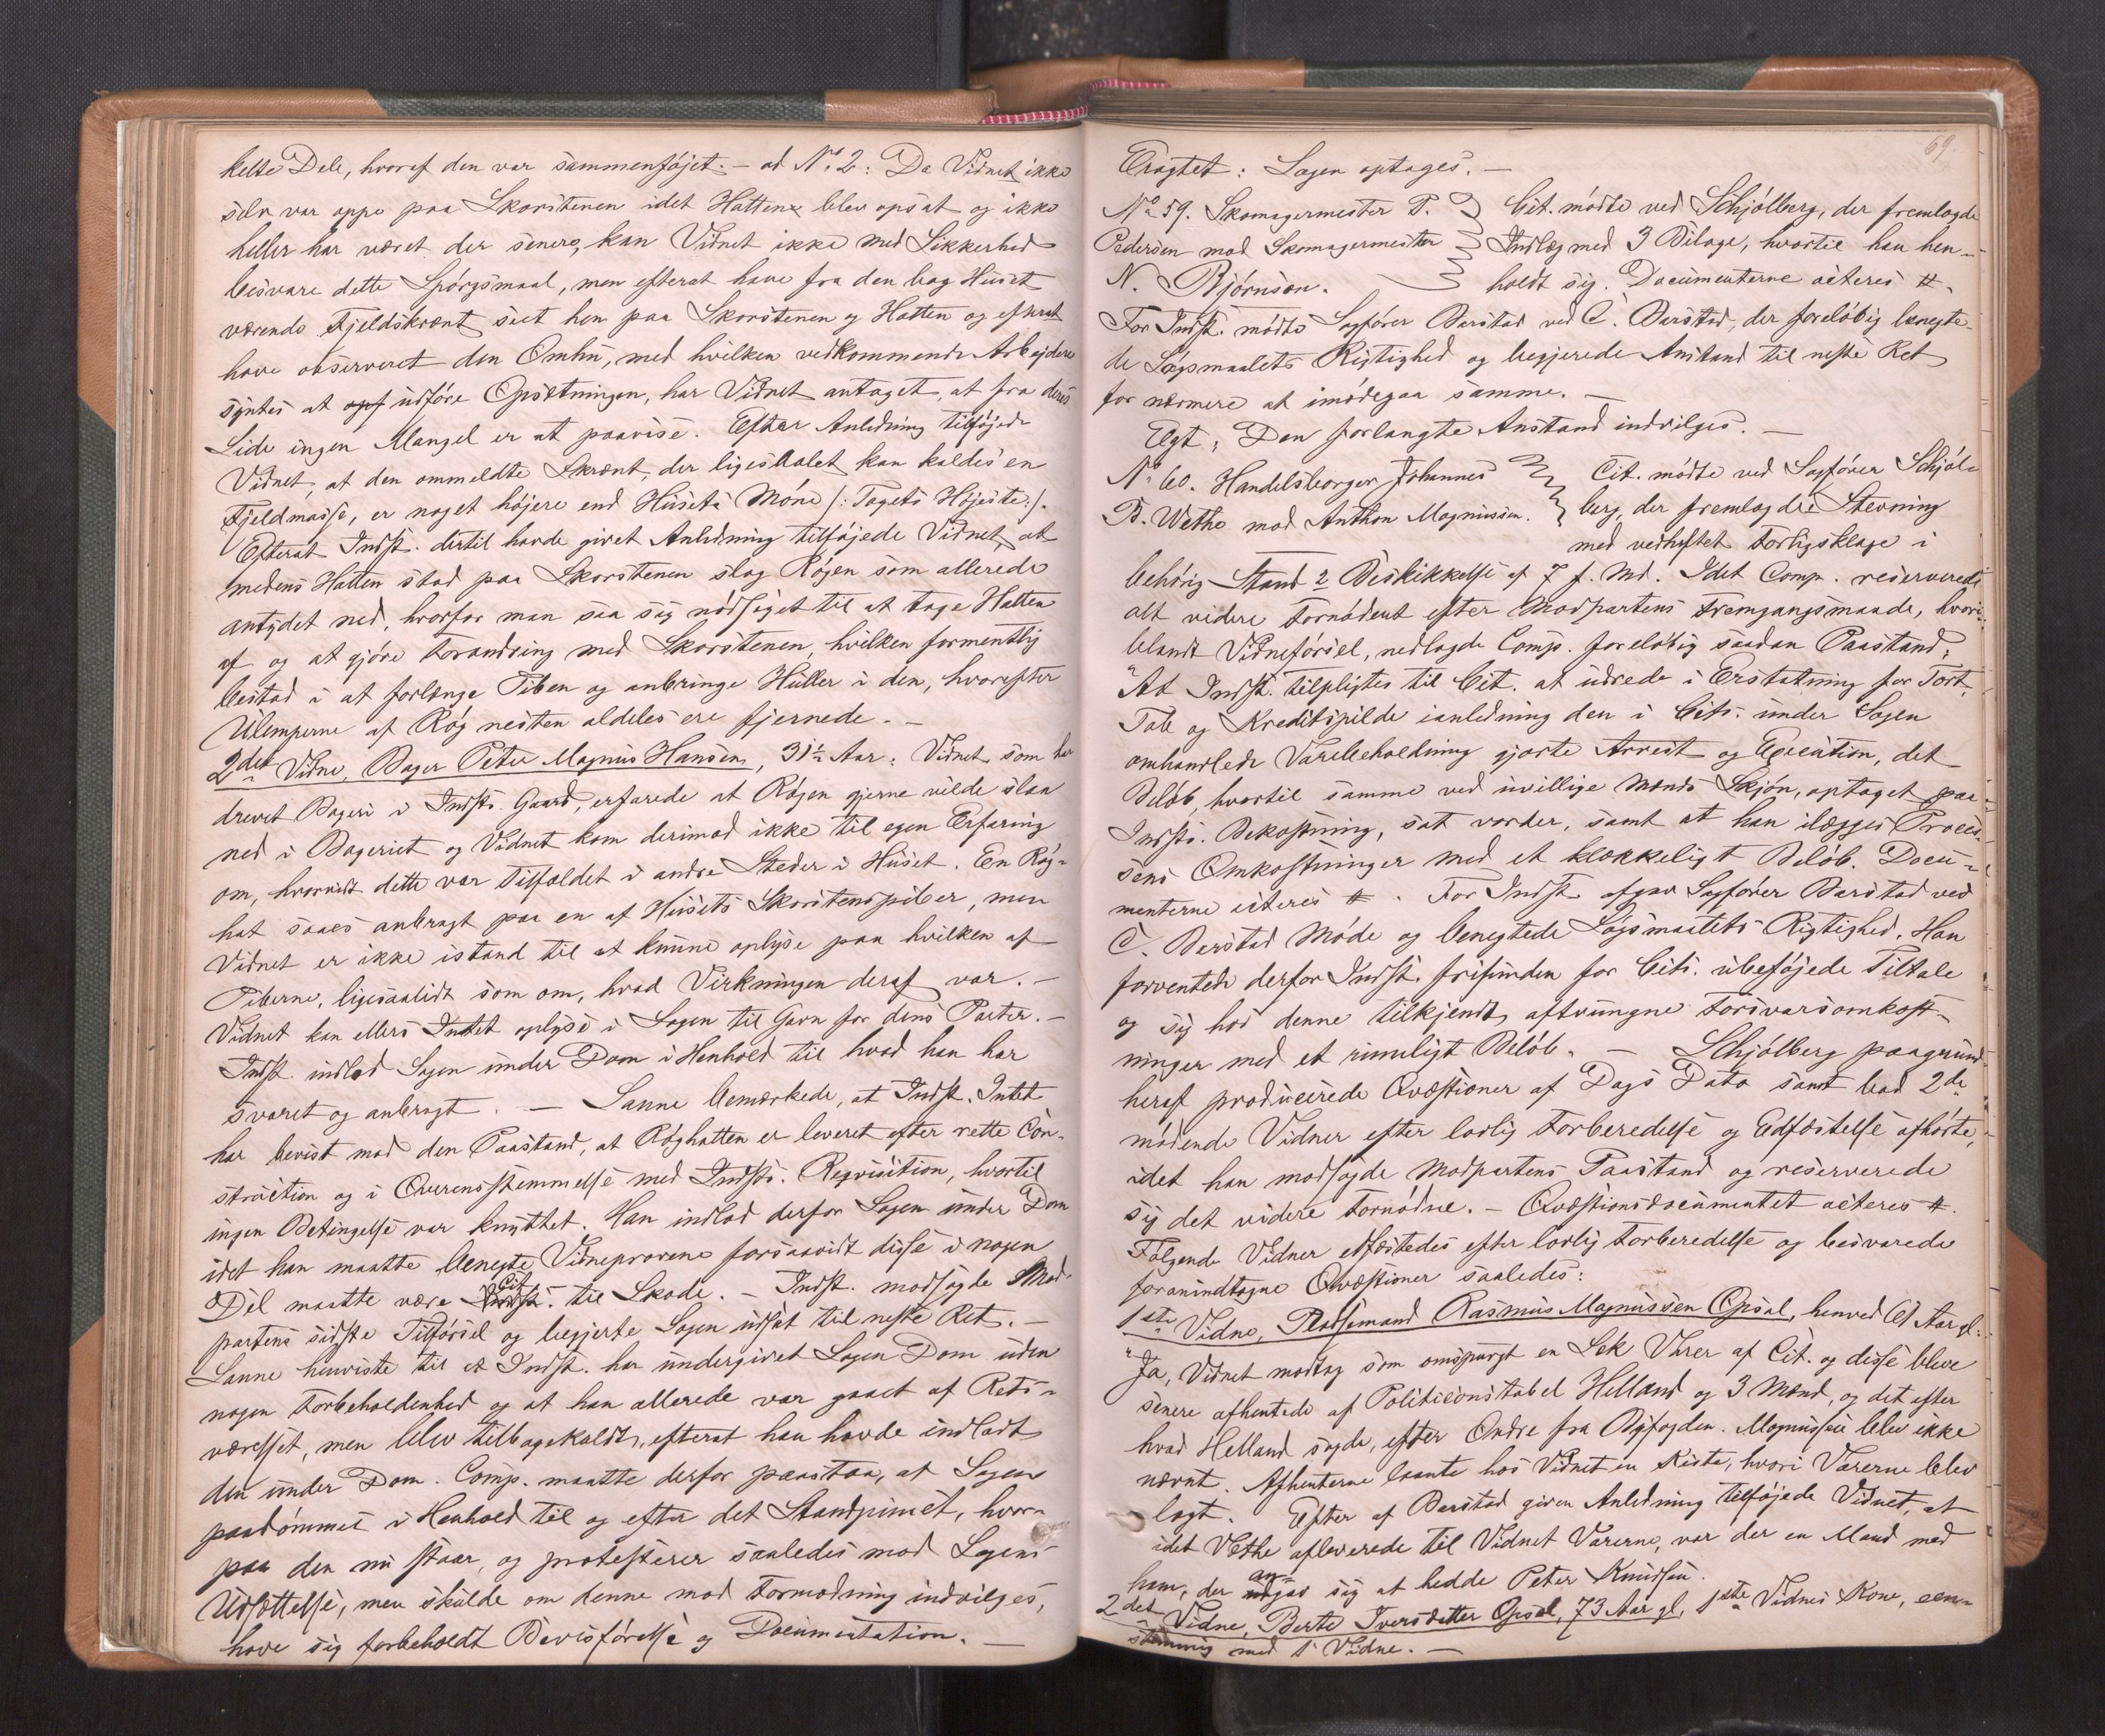 kelte Dele, hvoraf den var sammenføjet. – ad No. 2: Da Vidnet ikke
selv var oppe paa Skorstenen idet Hatten blev opsat og ikke
heller har været der senere, kan Vidnet ikke med Sikkerhed
besvare dette Spórgsmaal, men efterat have fra den bag Huset
værende Fjeldskrænt seet hen paa Skorstenen og Hatten og efterat
have observeret den Omhu, med hvilken vedkommende Arbejdere
syntes at udfóre Opsætningen, har Vidnet antaget, at fra deres
Side ingen Mangel er at paavise. Efter Anledning tilfójede
Vidnet, at den ommeldte Skrænt, der ligesaalet kan kaldes en
Fjeldmasse, er noget hójere end Husets Móne /: Tagets Hójeste :/.
Efterat Indst. dertil havde givet Anledning tilfójede Vidnet, at
medens Hatten stod paa Skorstenen slog Rógen som allerede
antydet ned, hvorfor man saa sig nódsaget til at tage Hatten
af og at gjóre Forandring med Skorstenen, hvilken formentlig
bestod i at forlænge Piben og anbringe Huller i den, hvorefter
Ulemperne af Róg næsten aldeles ere fjernede. –
2det Vidne, Bager Peter Magnus Hansen, 31½ Aar: Vidnet som har
drevet Bageri i Indsts. Gaard, erfarede at Rógen gjerne vilde slaa
ned i Bageriet og Vidnet kom derimod ikke til egen Erfaring
om, hvorvidt dette var Tilfældet i andre Steder i Huset. En Róg-
hat saaes anbragt paa en af Husets Skorstenspiber, men
Vidnet er ikke istand til at kunne oplyse paa hvilken af
Piberne, ligesaalidt som om, hvad Virkningen deraf var. –
Vidnet kan ellers Intet oplyse i Sagen til Gavn for dens Parter. –
Indst. indlod Sagen under Dom i Henhold til hvad han har
svaret og anbragt. – Sanne bemærkede, at Indst. Intet
har bevist mod den Paastand, at Róghatten er leveret efter rette Con-
struction og i Overensstemmelse med Indsts. Reqvisition, hvortil
ingen Betingelse var knyttet. Han indlod derfor Sagen under Dom
idet han maatte benegte Vidneprovene forsaavidt disse i nogen
Del maatte være Cit. til Skade. – Indst. modsagde Mod-
partens sidste Tilfórsel og begjerte Sagen udsat til neste Ret. –
Sanne henviste til at Indst. har undergivet Sagen Dom uden
nogen Forbeholdenhed og at han allerede var gaaet af Rets-
værelset, men blev tilbagekaldt, efterat han havde indladt
den under Dom. Comp. maatte derfor paastaa, at Sagen
paadómmes i Henhold til og efter det Standpunct, hvor-
paa den nu staar, og protesterer saaledes mod Sagens
Udsættelse, men skulde om denne mod Formodning indvilges,
have sig forbeholdt Bevisfórelse og Documentation. –
69.
Eragtet: Sagen optages. –
No 59. Skomagermester P.
Pedersen mod Skomagermester
N. Bjórnson.
Cit. módte ved Schjólberg, der fremlagde
Indlæg med 3 Bilage, hvortil han hen-
holdt sig. Documenterne acteres #.
For Indst. módte Sagfórer Barstad ved C. Barstad, der forelóbig benegte-
de Sógsmaalets Rigtighed og begjerede Anstand til neste Ret
for nærmere at imódegaa samme. –
Egt.: Den forlangte Anstand indvilges. –
No 60. Handelsborger Johannes
B. Wethe mod Anthon Magnussen.
Cit. módte ved Sagfórer Schjól-
berg, der fremlagde Stevning
med vedheftet Forligsklage i
behórig Stand & Beskikkelse af 7 f. Md. Idet Comp. reserverede
alt videre fornódent efter Modpartens Fremgangsmaade, hvori-
blandt Vidnefórsel, nedlagde Comp. forelóbig saadan Paastand:
"At Indst. tilpligtes til Cit. at udrede i Erstatning for Tort,
Tab og Kreditspilde ianledning den i Cits. under Sagen
omhandlede Varebeholdning gjorte Arrest og Execution, det
Belób, hvortil samme ved uvillige Mænds Skjón, optaget paa
Indsts. Bekostning, sat vorder, samt at han ilægges Proces-
sens Omkostninger med et klækkeligt Belób. Docu-
menterne acteres #. For Indst. afgav Sagfórer Barstad ved
C. Barstad Móde og benegtede Sógsmaalets Rigtighed. Han
forventede derfor Indst. frifunden for Cits. ubefójede Tiltale
og sig hos denne tilkjendt aftvungne Forsvarsomkost-
ninger med et rimeligt Belób. – Schjólberg paagrund
heraf producerede Qvæstioner af Dags Dato samt bad 2de
módende Vidner efter lovlig Forberedelse og Edfæstelse afhórte,
idet han modsagde Modpartens Paastand og reserverede
sig det videre Fornódne. – Qvæstionsdocumentet acteres #.
Fólgende Vidner edfæstedes efter lovlig Forberedelse og besvarede
foranindtagne Qvæstioner saaledes:
1ste Vidne, Pladsemand Rasmus Magnussen Opsal, henved Aar gl.:
"Ja, Vidnet modtog som omspurgt en Sæk Varer af Cit. og disse bleve
senere afhentede af Politiconstabel Helland og 3 Mænd, og det efter
hvad Helland sagde, efter Ordre fra Byfogden. Magnussen blev ikke
nævnt. Afhenterne laante hos Vidnet en Kiste, hvori Varerne blev
lagt. Efter af Barstad given Anledning tilfójede Vidnet, at
idet Wethe afleverede til Vidnet Varerne, var der en Mand med
ham, der angav sig at hedde Peter Knudsen.
2det Vidne, Berte Iversdatter Opsal, 73 Aar gl., 1ste Vidnes Kone, een-
stemmig med 1 Vidne. –